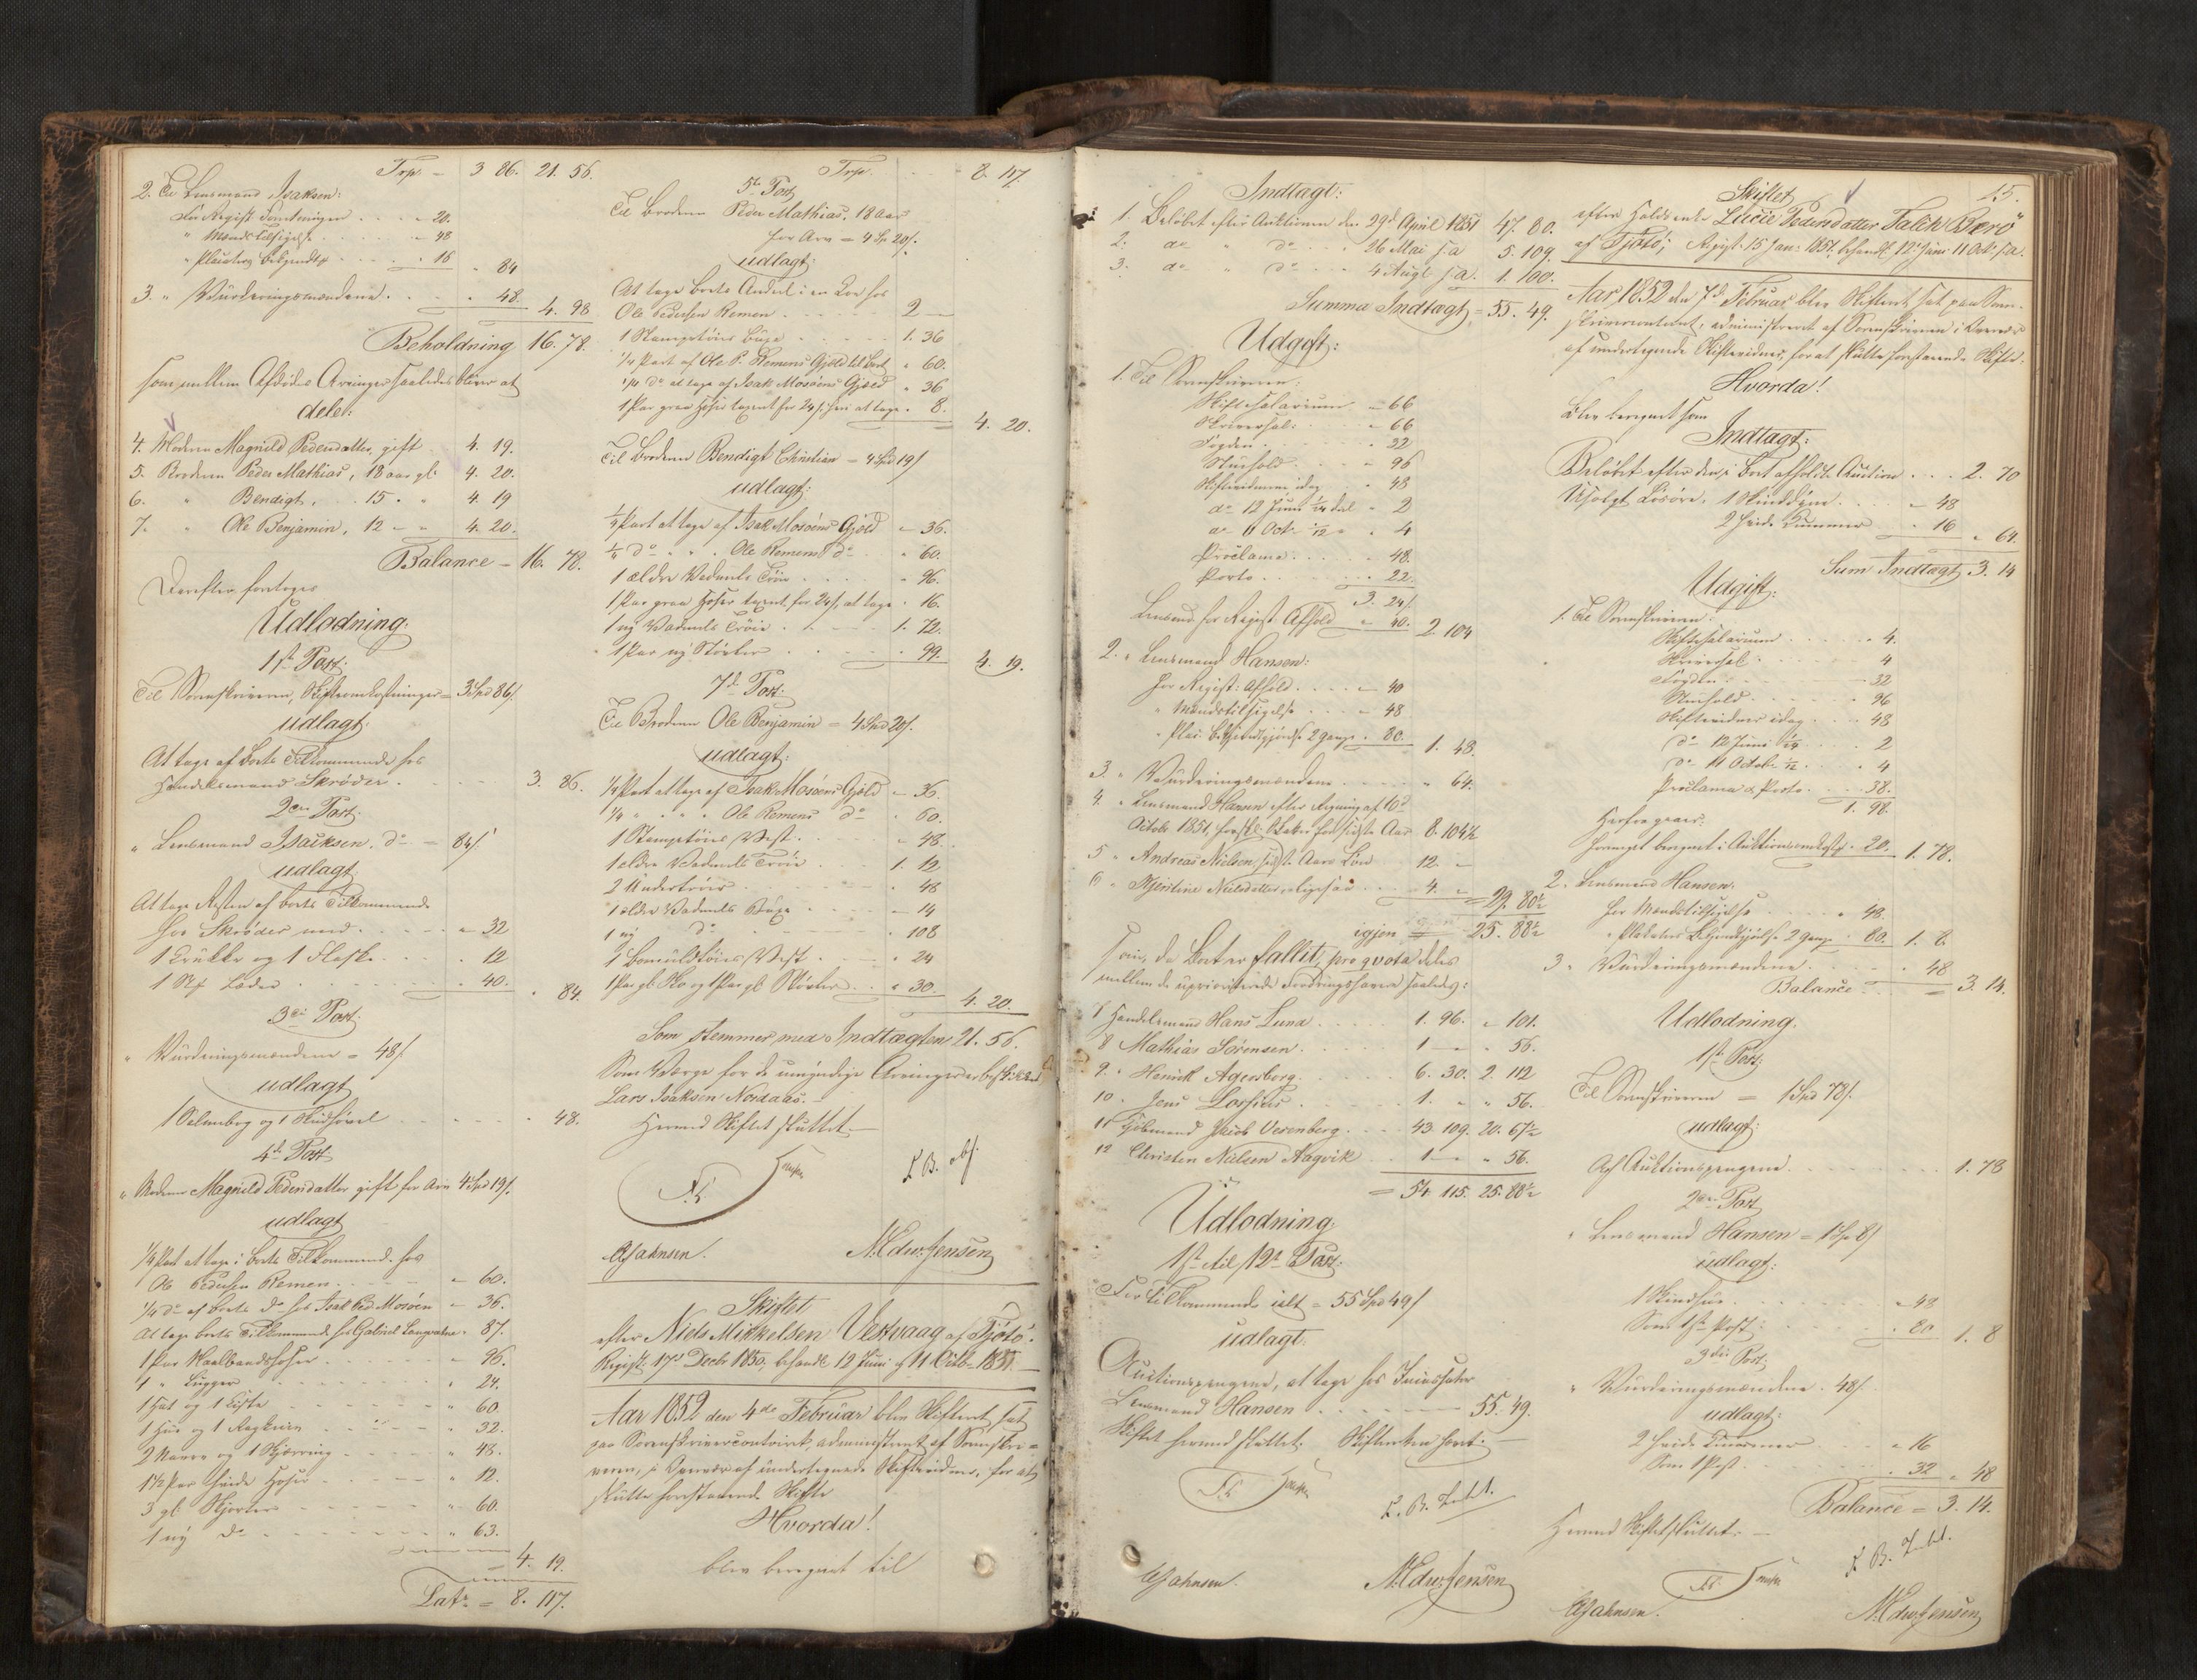 Trp. - 3 86. 21. 56.
2. Til Lensmand Isaksen:
For Regist. Forretningen - 20.
" Mands Tilsigelse - 48
" Placaters Bekjendtg. " 16 " 84
3. " Vurderingsmændene " 48. 4. 98
Beholdning 16. 78.
som mellem Afdødes Arvinger saaledes bliver at
dele:
4. Moderen Magnild Pedersdatter, gift 4. 19.
5. Broderen Peder Mathias, 18 aar gl. 4. 20.
6. " Bendigt, 15 " " 4. 19
7. " Ole Benjamin, 12 " " 4. 20.
Balance - 16. 78.
Derefter foretoges
Udlodning.
1ste Post.
Til Sorenskriveren, Skifteomkostninger = 3 Spd 86/.
udlagt:
At tage af Boets Tilkommende hos
Handelsmand Skrøder 3. 86.
2den Post.
" Lensmand Isaksen. do = 84/.
udlagt
At tage Resten af Boets Tilkommende
hos Skrøder med - 32
1 Krukke og 1 Flaske " 12
1 Stk Læder " 40. " 84.
3die Post.
" Vurderingsmændene = 48/.
udlagt
1 Salmebog og 1 48.
4de Post
" Moderen Magnild Pedersdatter gift for Arv 4 Spd 19/.
udlagt
1/4 Part at tage i Boets Tilkommende hos
Ole Pedersen Remen - 60.
1/4 do af Boets do hos Isak Ped. Mosøen - 36.
At tage Boets Tilkommende hos Gabriel " 87.
1 Par Haalbandshoser - 96.
1 " Lugger " 24.
1 Hat og 1 Kiste " 60
1 Hue og 1 " 32.
2 Navere og 1 " 48.
1½ Par hvide Hoser " 12.
3 gl. Skjorter " 60.
1 ny do " 63.
4. 19.
Latr = 8. 117.
Trp. 8. 117.
5te Post
Til Broderen Peder Mathias, 18 Aar
for Arv = 4 Sp 20/.
udlagt:
At tage Boets Andel i en hos
Ole Pedersen Remen 2 -
1 Stumptøies Buxe 1. 36
1/4 Part af Ole P. Remens Gjæld til Boet " 60.
1/4 do at tage af Isak Mosøens Gjæld " 36
1 Par graa Hoser taxeret for 24/: heri at tage " 8. 4. 20.
Til Broderen Bendigt Christian = 4 Spd 19/
udlagt:
1/4 Part at tage af Isak Mosøens Gjæld - 36.
1/4 do " " Ole Remens do " 60.
1 ældre Vadmels Trøie " 96.
1 Par graa Hoser taxeret for 24/, at tage " 16.
1 ny Vadmels Trøie 1. 72.
1 Par ny Støvler " 99. 4. 19.
7de Post.
Til Broderen Ole Benjamin = 4 Spd 20/.
udlagt:
1/4 Part at tage af Isak Mosøens Gjæld - 36.
1/4 " " " Ole Remens do " 60.
1 Stumptøies Vest " 48.
1 ældre Vadmels Trøie 1. 12
2 Undertrøier " 48
1 ældre Vadmels Buxe - 14
1 ny do " 108
1 Bomuldstøies Vest " 24
1 Par gl. Sko og 1 Par gl Støvler " 30. 4. 20.
Som stemmer med Indtægten 21. 56.
Som Værge for de umyndige Arvinger er beskikket
Lars Isaksen Nordaas. -
Hermed Skiftet sluttet -
L. B. obs.
CJahnsen. N. Edw. Jensen
Skiftet
efter Niels Mikkelsen Vestvaag af Tjötö.
Regist. 17de Decbr 1850, behandl. 12 Juni og 11 Octb. 1851.
Aar 1852 den 4de Februar blev Skifteret sat
paa Sorenskrivercontoiret, administreret af Sorenskri=
veren, i Overvær af undertegnede Skiftevidner, for at
slutte forestaaende Skifte
Hvorda!
blev beregnet til
Indtægt:
1. Beløbet efter Auktionen den 29de April 1851 47. 80.
2. do " do 26 Mai s. a 5. 109.
3. do " do 4 Augt s. a. 1. 100.
Summa Indtægt = 55. 49.
Udgift:
1. Til Sorenskriveren:
Skiftesalarium - 66
Skriversal: " 66
Fogden " 32
Stuehold - 96
Skiftevidnerne idag " 48
do 12 Juni 1/24 Deel " 2
do 11 Oct. 1/12 " " 4
Proclama " 48.
Porto " 22.
3. 24/.
Lensmd. for Regist. Afhold " 40. 2. 104
2. " Lensmand Hansen:
for Regist: Afhold - 40
" Mandstilsigelse - 48
" Plac. Bekjendtgjørelse 2 gange " 80. 1. 48.
3. " Vurderingsmændene " 64.
4. " Lensmand Hansen efter Regning af 16de
Octob. 1851, Skatter for sidste Aar 8. 104½
5 " Andreas Nielsen, sidste Aars Løn 12. "
6 " Kjerstine Nielsdatter, ligesaa 4. " = 29. 80½
igjen = 25. 88½
som, da Boet er fallit, pro quota deles
mellem de uprioriterede Fordringshavere saaledes:
7 Handelsmand Hans Luna 1. 96. - 101.
8 Mathias Sørensen 1 - - " 56.
9. " Henrik Agersborg 6. 30. 2. 112
10. " Jens Lorfius 1. " " 56.
11 Kjøbmand Jacob Verenberg 43 109. 20. 67½
12 Christen Nielsen Aagvik 1 - " 56.
= 54 115. 25. 88½
Udlodning.
1ste til 12te Post.
For Tilkommende ialt = 55 Spd 49/
udlagt.
Auctionspengene, at tage hos Incassator
Lensmand Hansen 55. 49.
Skiftet hermed sluttet. Skifteretten hævet.
CJahnsen. N. Edw. Jensen
15.
Skiftet
efter Lucie Pedersdatter Falch Berö
af Tjötö; Regist. 15 Jan: 1851, behandl. 12 Juni 11 Oct. s. a.
Aar 1852 den 7de Februar blev Skifteret sat paa Soren-
skrivercontoret, administreret af Sorenskriveren i Overvær
af undertegnede Skiftevidner, for at slutte forestaaende Skifte.
Hvorda!
blev beregnet som
Indtægt:
Beløbet efter den i Boet afholdte Auction 2. 70
Usolgt Løsøre. 1 - 48
2 hvide " 16 " 64.
Sum Indtægt 3. 14
Udgift:
1. Til Sorenskriveren.
Skiftesalarium " 4.
Skriversal. 4
Fogden 32
Stuehold 96
Skiftevidner idag 48
do 12 Juni 1/24 2
do 11 Octob. 1/12 " 4
Proclama & Porto 38.
1. 98.
Herfra gaaer:
beregnet i Auktionsomkostg. 20. 1. 78.
2. Lensmand Hansen:
for Mandstilsigelse " 48.
" Placaters Bekjendtgjørelse 2 gange " 80. 1. 8.
3 " Vurderingsmændene " 48
Balance = 3. 14.
Udlodning.
1ste Post.
Til Sorenskriveren = 1 Spd 78/.
udlagt:
Af Auktionspengene 1. 78
2den Post
" Lensmand Hansen = 1 Sp 8/
udlagt:
1 - 48
Som 1ste Post " 80 1. 8
3die Post.
" Vurderingsmændene. 48/.
udlagt:
2 hvide " 16
Som 1 Post " 32 " 48
Balance = 3. 14.
Hermed Skiftet sluttet. -
CJahnsen. N. Edw. Jensen